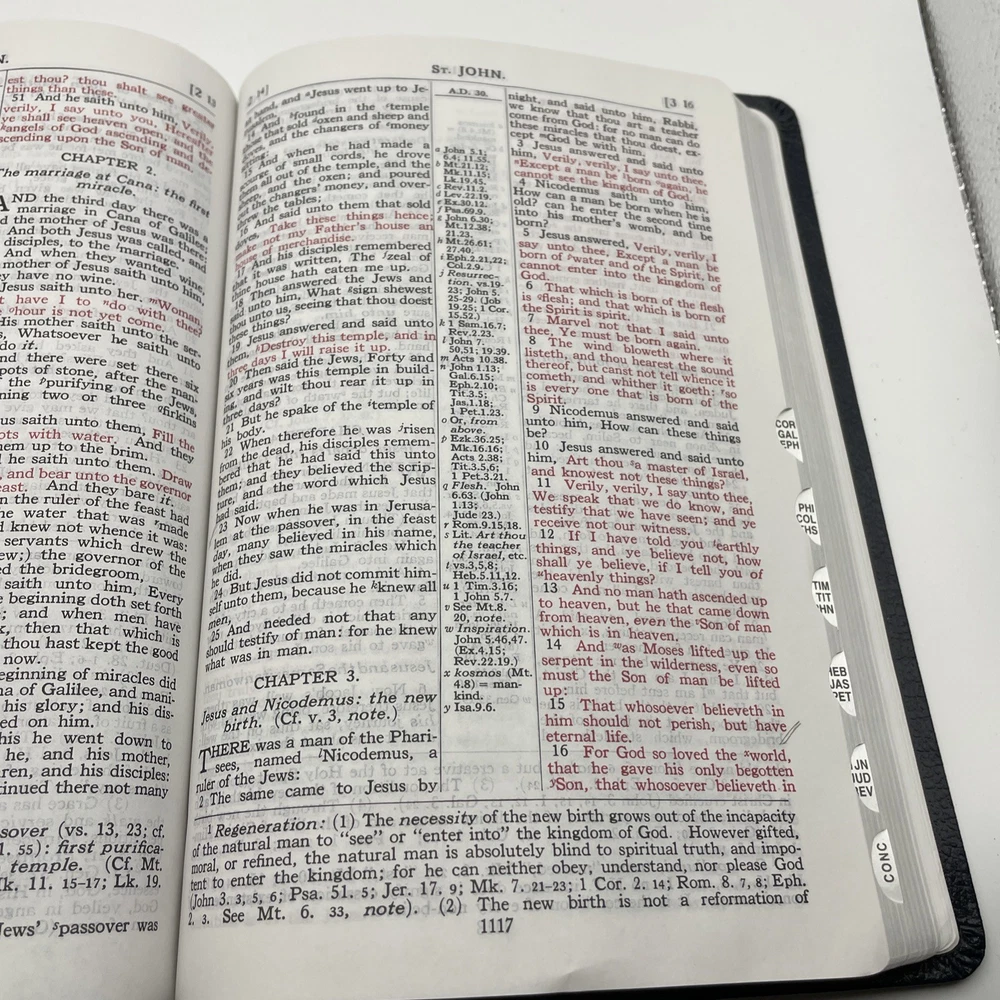 N.
[2 13
est thou? thou shalt see greater
things than these.
51 And he saith unto him, Verily,
verily, I say unto you, Hereafter
ye shall see heaven open, and the
angels of God ascending and de-
scending upon the Son of man.
CHAPTER 2.
The marriage at Cana: the first
miracle.
AND the third day there was a
marriage in Cana of Galilee;
d the mother of Jesus was there:
And both Jesus was called, and
disciples, to the marriage.
And when they wanted wine,
mother of Jesus saith unto him,
y have no wine.
Jesus saith unto her, mWoman,
t have I to ndo with thee?
ohour is not yet come.
His mother saith unto the ser-
s, Whatsoever he saith unto
do it.
nd there were set there six
pots of stone, after the man-
the ppurifying of the Jews,
ning two or three qfirkins
us saith unto them, Fill the
ots with water. And they
em up to the brim.
he saith unto them, Draw
, and bear unto the governor
east. And they bare it.
n the ruler of the feast had
he water that was rmade
d knew not whence it was:
servants which drew the
ew;) the governor of the
ed the bridegroom,
saith unto him, Every
e beginning doth set forth
; and when men have
k, then that which is
thou hast kept the good
now.
eginning of miracles did
na of Galilee, and mani-
his glory; and his dis-
ed on him.
his he went down to
he, and his mother,
ren, and his disciples:
tinued there not many
sover (vs. 13, 23; cf.
1. 55): first purifica-
temple. (Cf. Mt.
k. 11. 15-17; Lk. 19.
Jews' spassover was
ST. JOHN.
2 14]
A.D. 30.
[3 16
hand, and aJesus went up to Je-
rusalem,
14 And bfound in the ctemple
those that sold doxen and sheep and
doves, and the changers of emoney
sitting:
15 And when he had made a
scourge of small cords, he drove
them all out of the temple, and the
sheep, and the oxen; and poured
out the changers' money, and over-
threw the tables;
16 And said unto them that sold
doves, Take these things hence;
make not my Father's house an
house of merchandise.
17 And his disciples remembered
that it was written, The fzeal of
thine house hath eaten me up.
18 Then answered the Jews and
said unto him, What gsign shewest
thou unto us, seeing that thou doest
these things?
19 Jesus answered and said unto
them, hDestroy this temple, and in
three days I will raise it up.
20 Then said the Jews, Forty and
six years was this temple in build-
ing, and wilt thou rear it up in
three days?
21 But he spake of the itemple of
his body.
22 When therefore he was jrisen
from the dead, his disciples remem-
bered that he had said this unto
them; and they believed the scrip-
ture, and the word which Jesus
had said.
23 Now when he was in Jerusa-
lem at the passover, in the feast
day, many believed in his name,
when they saw the miracles which
he did.
24 But Jesus did not commit him-
self unto them, because he kknew all
men,
25 And needed not that any
should testify of man: for he knew
what was in man.
CHAPTER 3.
Jesus and Nicodemus: the new
birth. (Cf. v. 3, note.)
THERE was a man of the Phari-
sees, named lNicodemus, a
ruler of the Jews:
2 The same came to Jesus by
a John 5.1;
6.4; 11.55.
b Mt.21.12;
Mk.11.15;
Lk.19.45.
c Rev.11.2.
d Lev.22.19.
e Ex.30.12.
f Psa.69.9.
g John 6.30;
Mt.12.38;
21.23.
h Mt.26.61;
27.40.
i Eph.2.21,22;
Col.2.9.
j Resurrec-
tion. vs.19-
23; John 5.
25-29. (Job
19.25; 1 Cor.
15.52.)
k 1 Sam.16.7;
Rev.2.23.
l John 7.
50,51; 19.39.
m Acts 10.38.
n John 1.13;
Gal.6.15;
Eph.2.10;
Tit.3.5;
Jas.1.18;
1 Pet.1.23.
o Or, from
above.
p Ezk.36.25;
Mk.16.16;
Acts 2.38;
Tit.3.5,6;
1 Pet.3.21.
q Flesh. John
6.63. (John
1.13;
Jude 23.)
r Rom.9.15,18.
s Lit. Art thou
the teacher
of Israel, etc.
t vs.3,5,8;
Heb.5.11,12.
u 1 Tim.3.16;
1 John 5.7.
v See Mt.8.
20, note.
w Inspiration.
John 5.46,47.
(Ex.4.15;
Rev.22.19.)
x kosmos (Mt.
4.8) = man-
kind.
y Isa.9.6.
night, and said unto him, Rabbi,
we know that thou art a teacher
come from God: for no man can do
these miracles that thou doest, ex-
cept mGod be with him.
3 Jesus answered and said unto
him, Verily, verily, I say unto thee,
nExcept a man be 1born oagain, he
cannot see the kingdom of God.
4 Nicodemus saith unto him,
How can a man be born when he is
old? can he enter the second time
into his mother's womb, and be
born?
5 Jesus answered, Verily, verily, I
say unto thee, Except a man be
born of pwater and of the Spirit, he
cannot enter into the kingdom of
God.
6 That which is born of the flesh
is qflesh; and that which is born of
the Spirit is spirit.
7 Marvel not that I said unto
thee, Ye must be born again.
8 The wind bloweth where it
listeth, and thou hearest the sound
thereof, but canst not tell whence it
cometh, and whither it goeth: rso
is every one that is born of the
Spirit.
9 Nicodemus answered and said
unto him, How can these things
be?
10 Jesus answered and said unto
him, Art thou sa master of Israel,
and knowest not these things?
11 Verily, verily, I say unto thee,
We speak that we do know, and
testify that we have seen; and ye
receive not our witness.
12 If I have told you tearthly
things, and ye believe not, how
shall ye believe, if I tell you of
uheavenly things?
13 And no man hath ascended up
to heaven, but he that came down
from heaven, even the vSon of man
which is in heaven.
14 And was Moses lifted up the
serpent in the wilderness, even so
must the Son of man be lifted
up:
15 That whosoever believeth in
him should not perish, but have
eternal life.
16 For God so loved the xworld,
that he gave his only begotten
ySon, that whosoever believeth in
1 Regeneration: (1) The necessity of the new birth grows out of the incapacity
of the natural man to "see" or "enter into" the kingdom of God. However gifted,
moral, or refined, the natural man is absolutely blind to spiritual truth, and impo-
tent to enter the kingdom; for he can neither obey, understand, nor please God
(John 3. 3, 5, 6; Psa. 51. 5; Jer. 17. 9; Mk. 7. 21-23; 1 Cor. 2. 14; Rom. 8. 7, 8; Eph.
2. 3. See Mt. 6. 33, note). (2) The new birth is not a reformation of
1117
COR
GAL
EPH
PHI
COL
HS
TIM
TIT
HN
HEB
JAS
PET
JN
JUD
REV
CONC